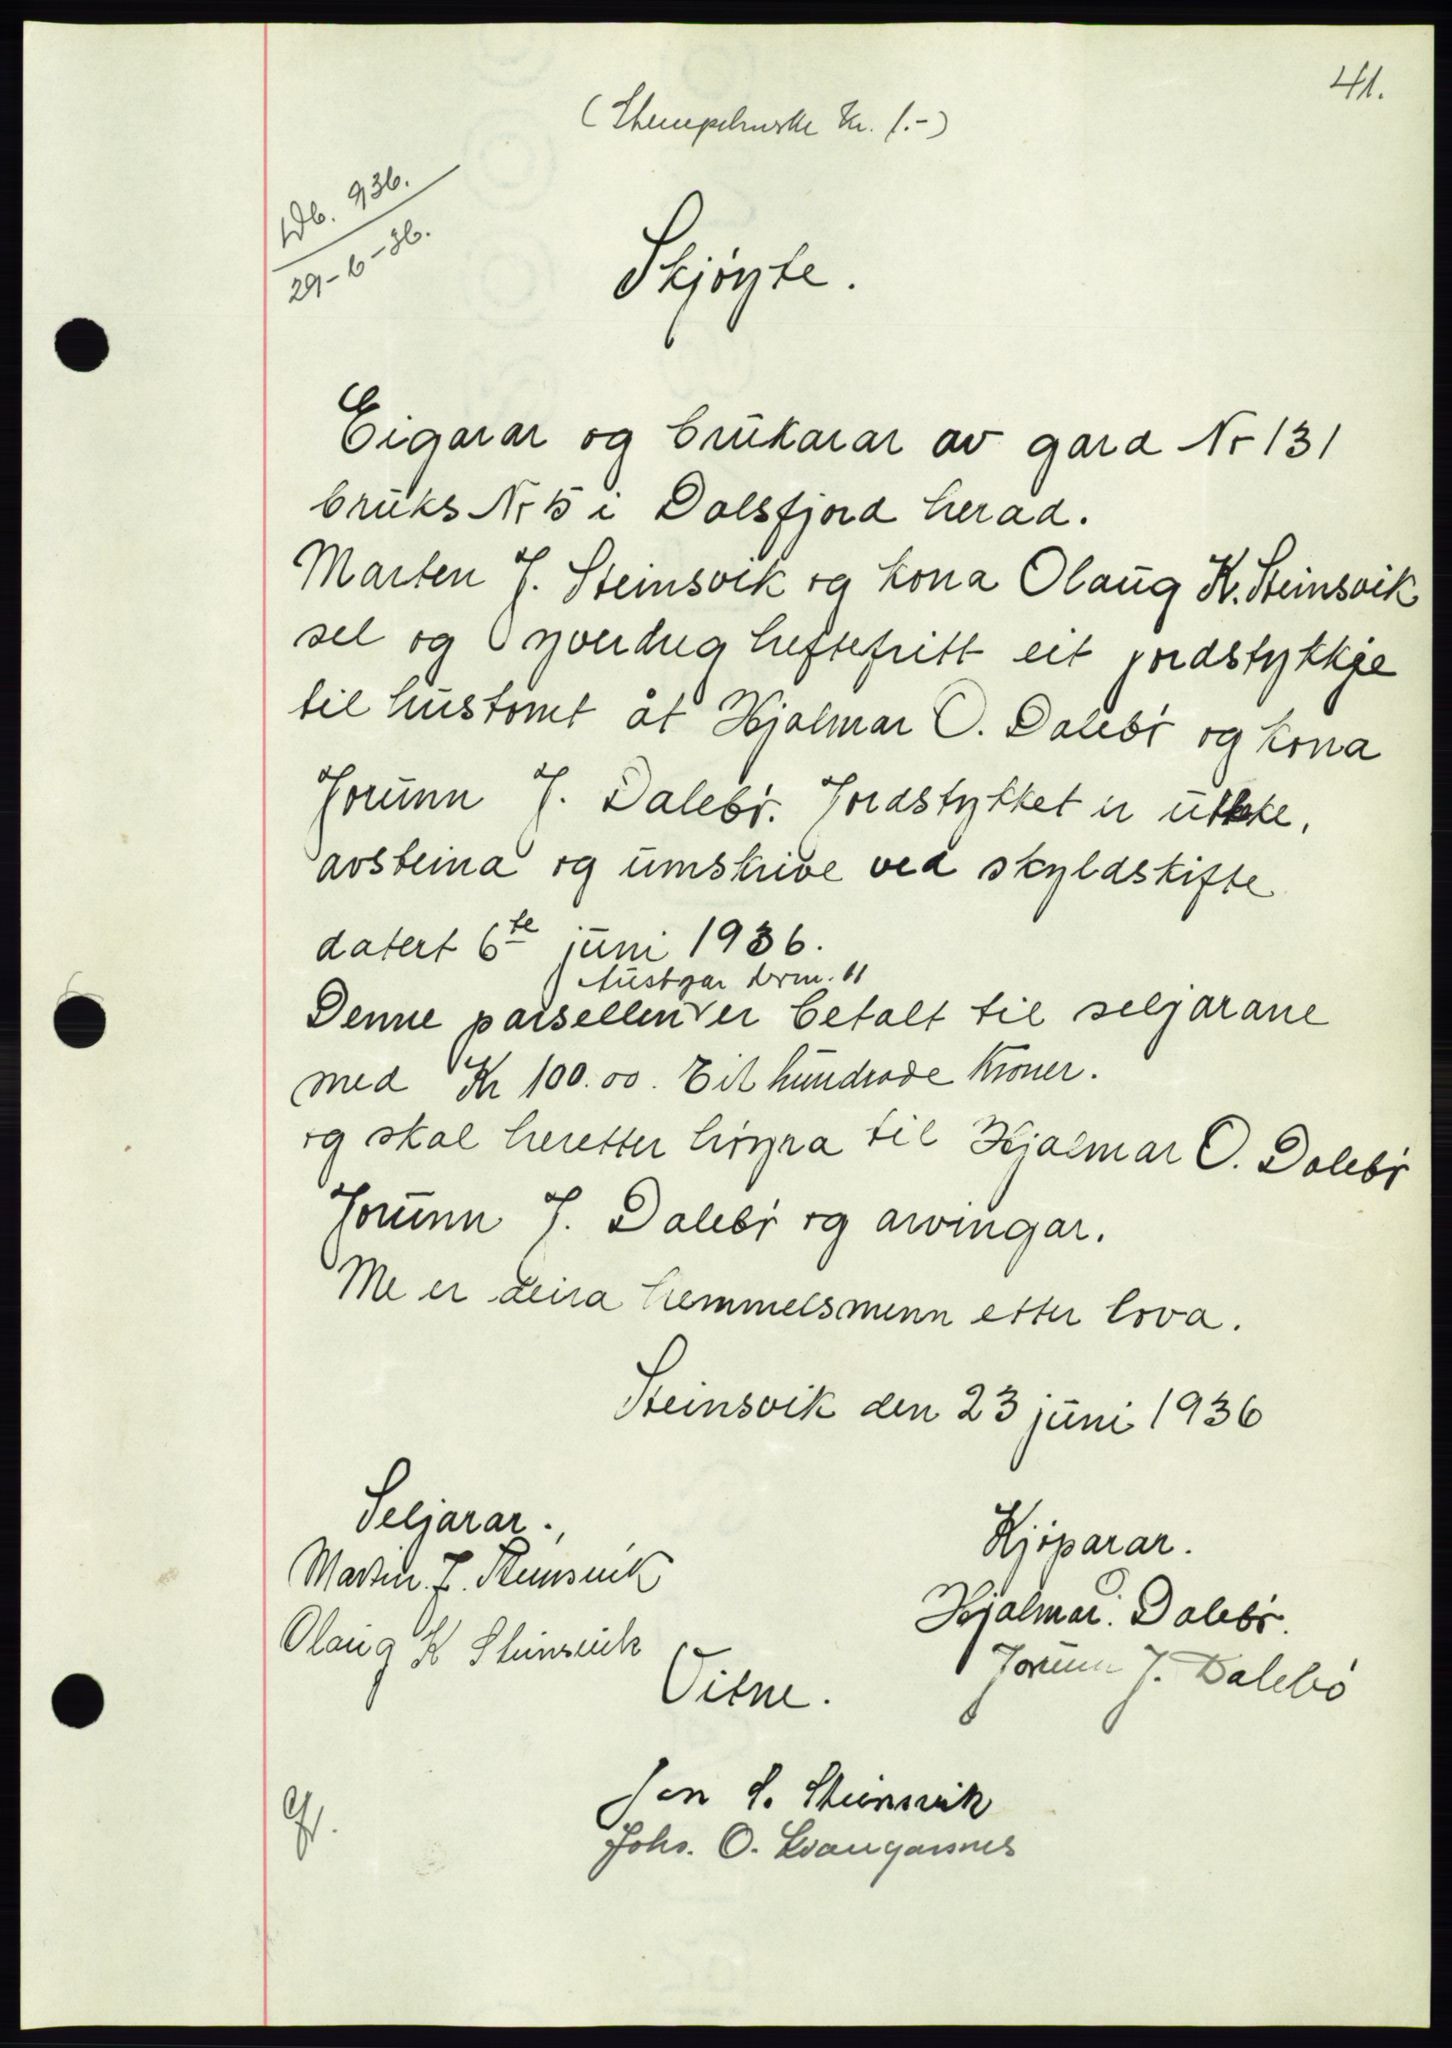 41.
(Stempelmerke Kr. 1.-)
Db. 936.
29-6-36.
Skjøyte.
Eigarar og brukarar av gard Nr 131
bruks Nr 5 i Dalsfjord herad.
Marten J. Steinsvik og kona Olaug K. Steinsvik
sel og yverdreg heftefritt eit jordstykkje
til hustomt åt Hjalmar O. Dalebø og kona
Jorunn J. Dalebø. Jordstykket er utskte,
avsteina og umskrive ved skyldskifte
datert 6te juni 1936.
Austgar brnr. 11
Denne parsellen er betalt til seljarane
med Kr 100.00. Eit hundrade Kroner.
og skal heretter høyra til Hjalmar O. Dalebø
Jorunn J. Dalebø og arvingar.
Me er deira hemmelsmenn etter lova.
Steinsvik den 23 juni 1936
Seljarar.,
Martin. J. Steinsvik
Olaug K Steinsvik
Kjøparar.
Hjalmar O. Dalebø.
Jorunn J. Dalebø
Vitne.
Jon S. Steinsvik
Johs. O. Kvangarsnes